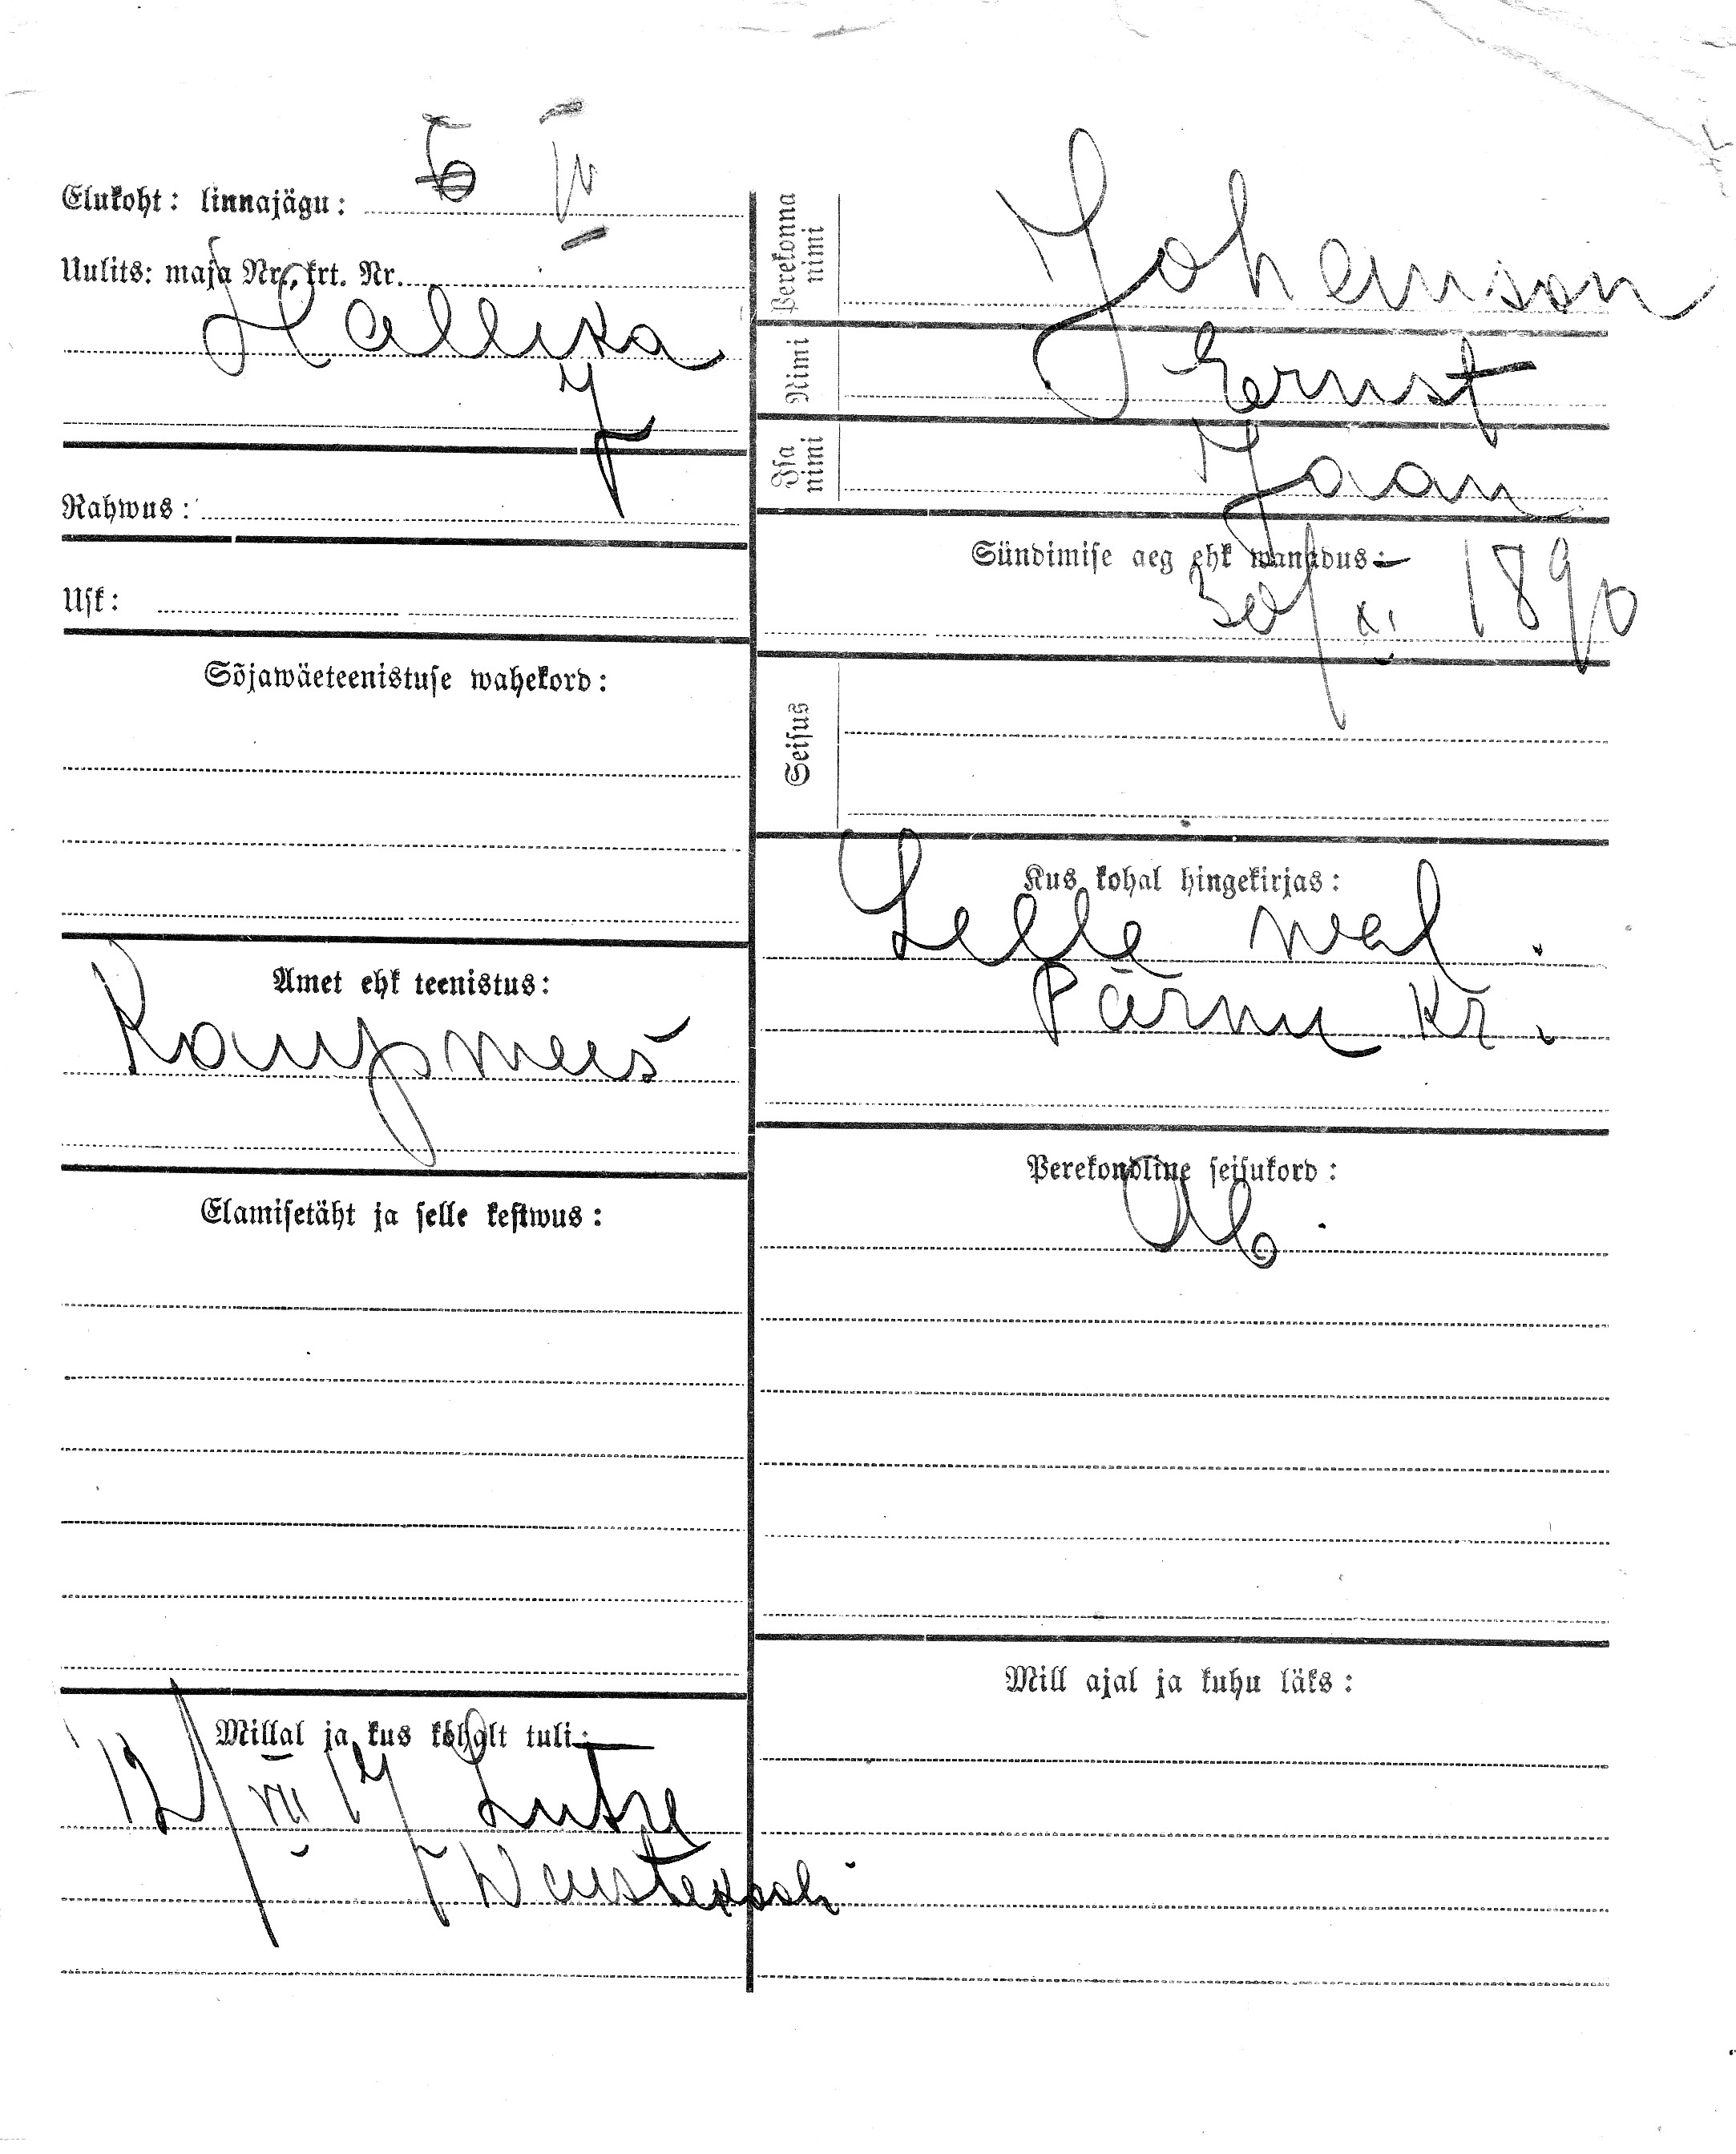 Elukoht: linnajägu: 6 IV
Uulits: maja Nr., krt. Nr.
Hallika
7
Rahwus:
Usk:
Sõjawäeteenistuse wahekord:
Amet ehk teenistus:
Kaupmees
Elamisetäht ja selle kestwus:
Millal ja kus kohalt tuli:
12/VII 17 Lutze
Perekonna nimi
Johanson
Nimi
Ernst
Isa nimi
Jaan
Sündimise aeg ehk wanadus:
30/XI 1890
Seisus
Kus kohal hingekirjas:
Lelle wal.
Pärnu Kr.
Perekondline seisukord:
Ab.
Mill ajal ja kuhu läks: